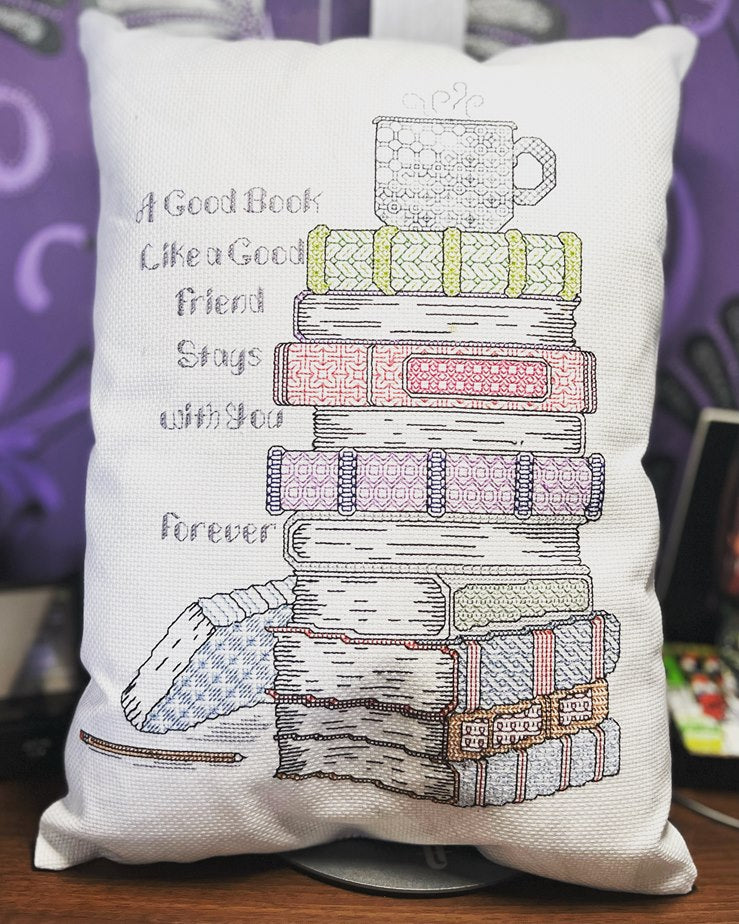 A Good Book
Like a Good
Friend
Stays
with You
Forever